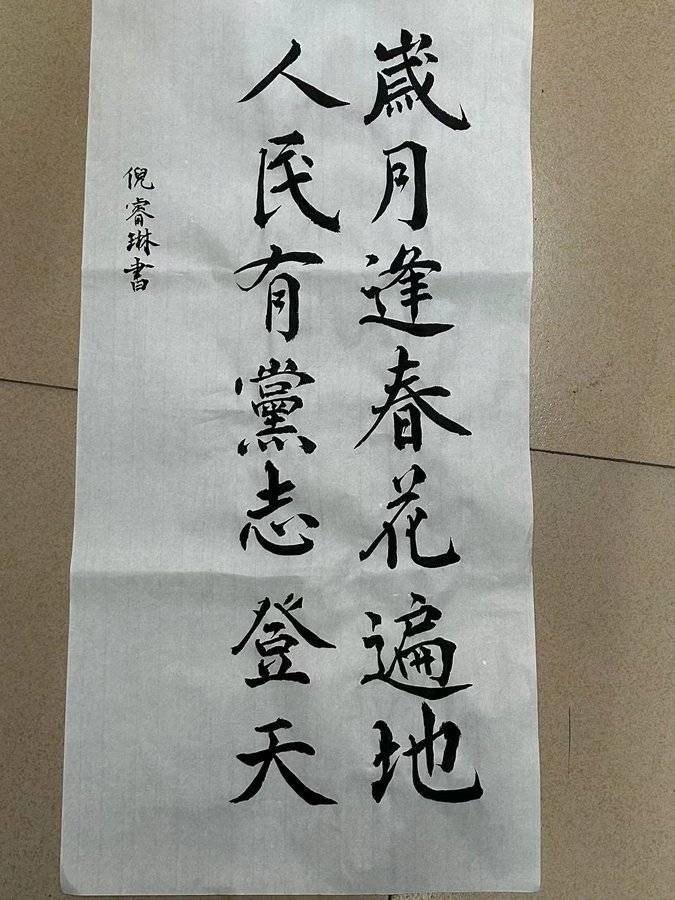 歲月逢春花遍地
人民有黨志登天
倪睿琳書